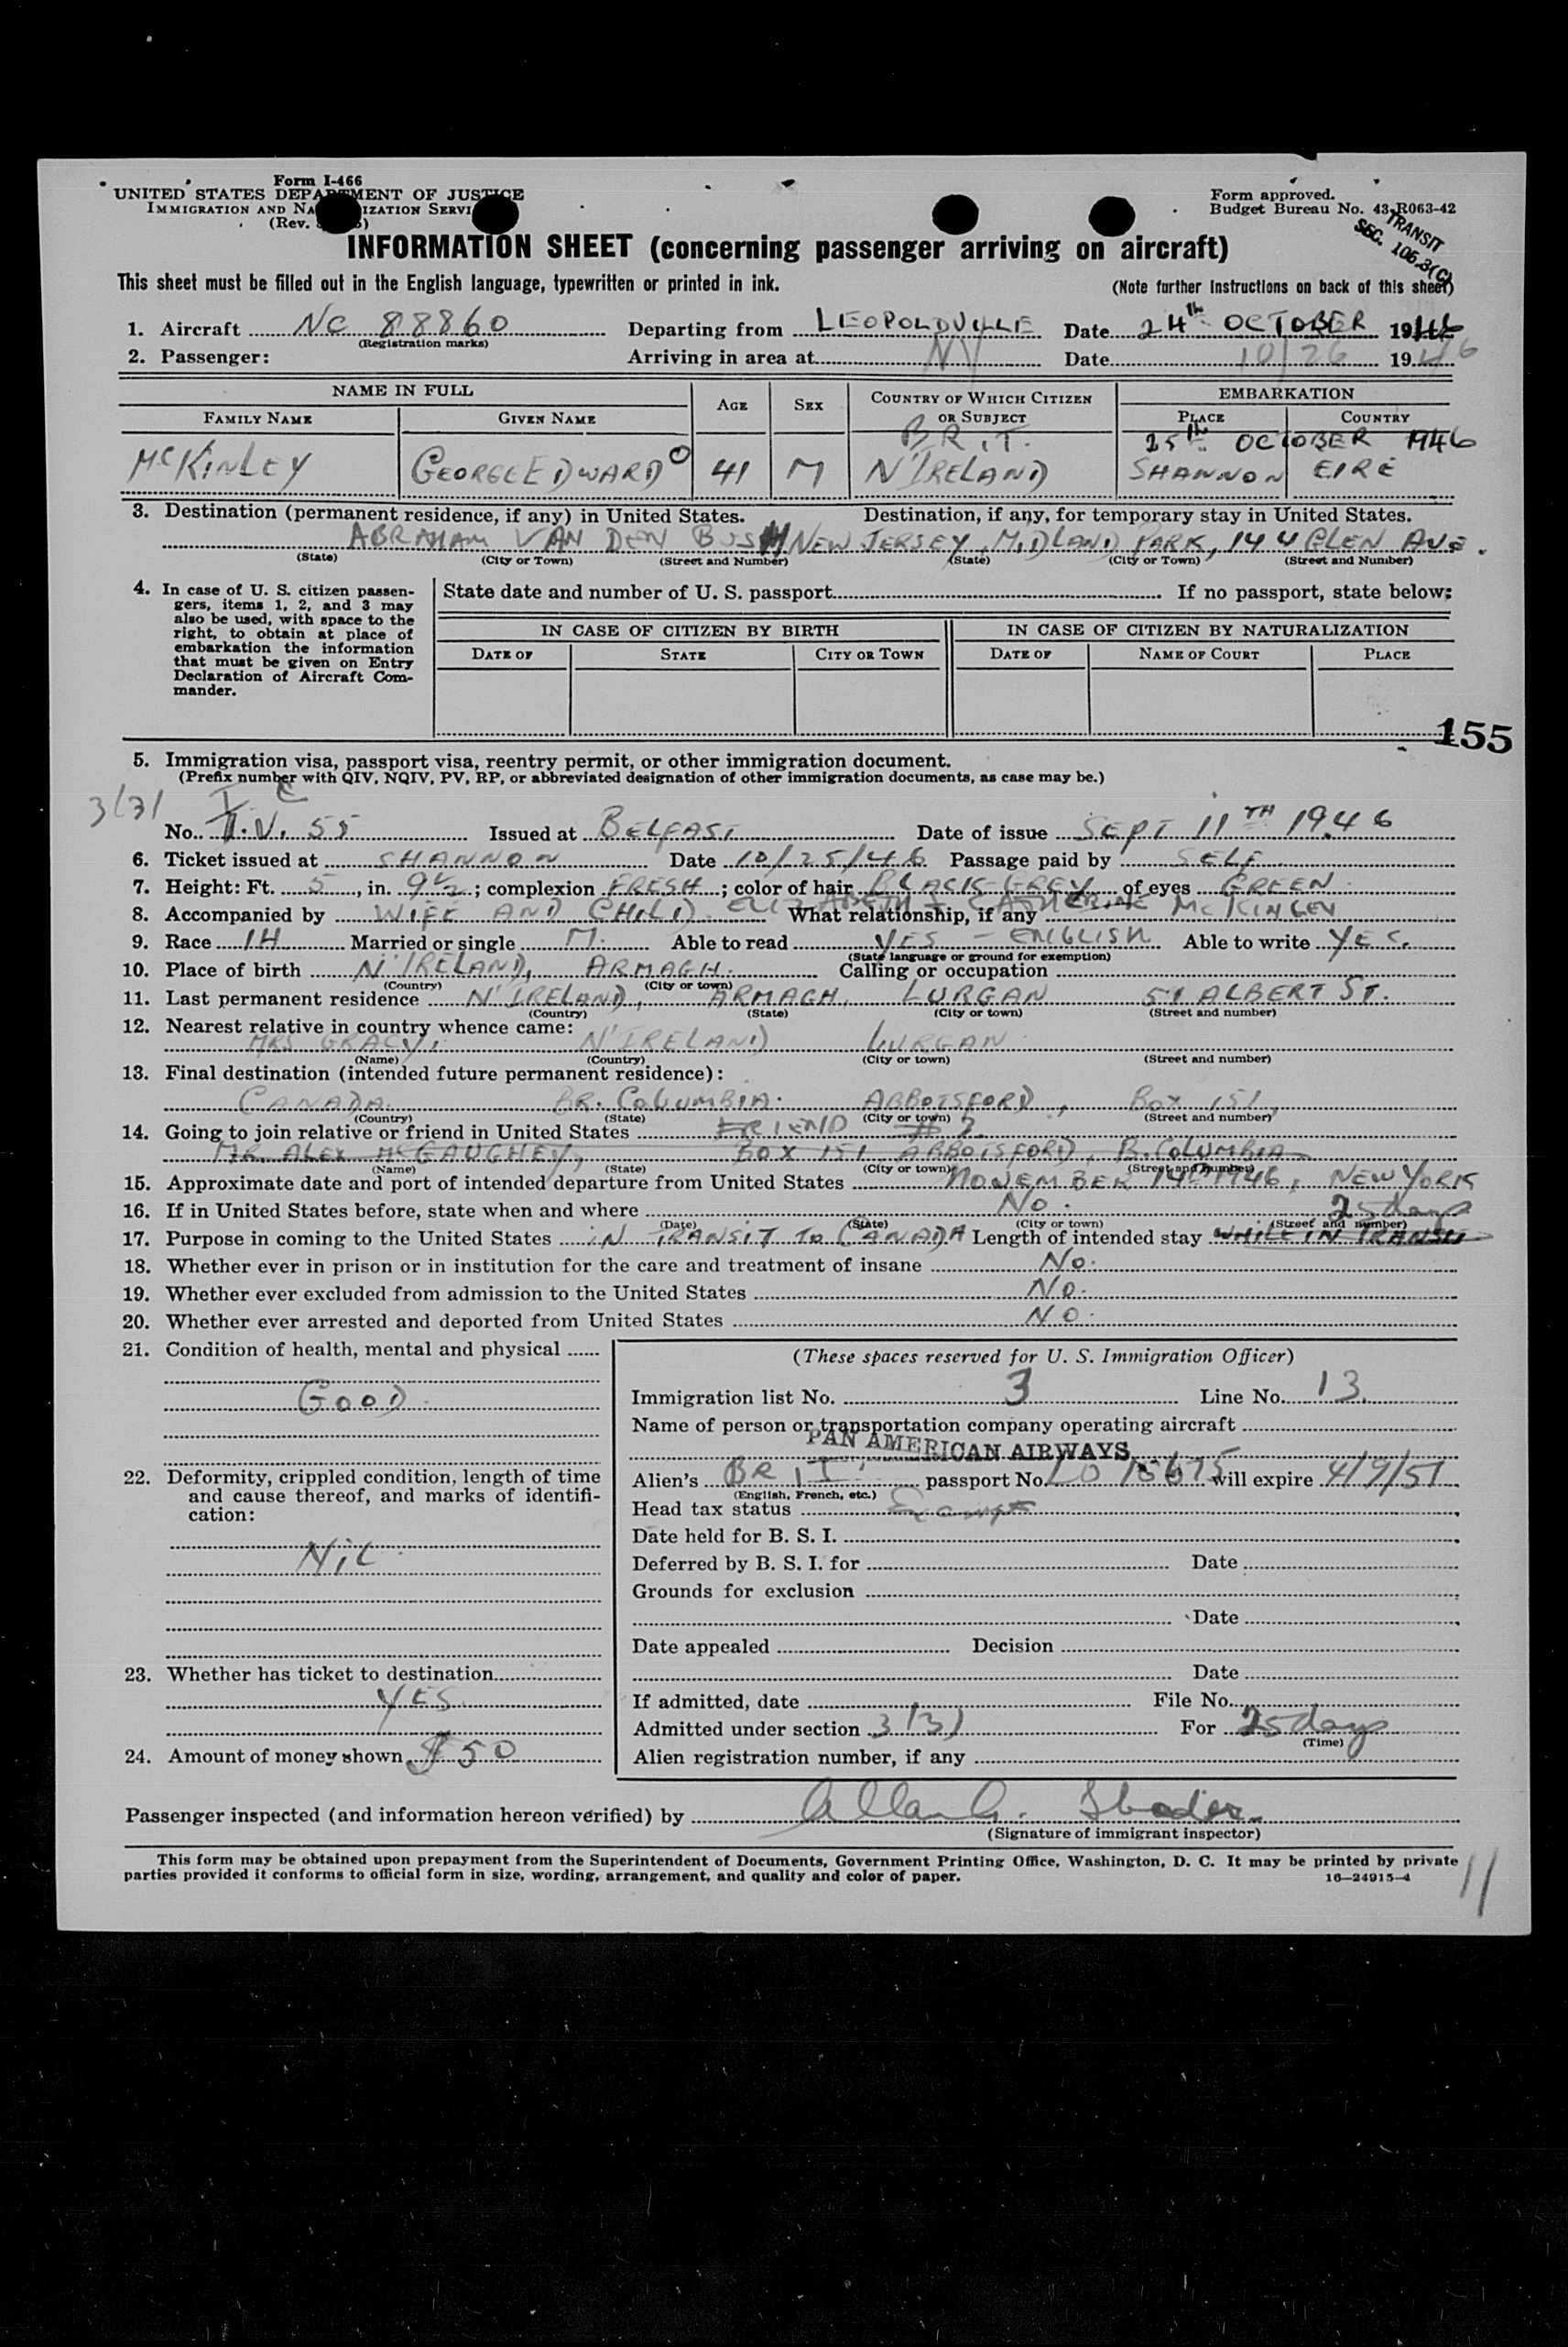 Form I-466
UNITED STATES DEPARTMENT OF JUSTICE
IMMIGRATION AND NATURALIZATION SERVICE
(Rev.
Form approved.
Budget Bureau No. 43-R063-42
TRANSIT
SEC. 106.3(C)
INFORMATION SHEET (concerning passenger arriving on aircraft)
This sheet must be filled out in the English language, typewritten or printed in ink. (Note further instructions on back of this sheet)
1. Aircraft NC 88860 Departing from LEOPOLDVILLE Date 24th OCTOBER 1946
(Registration marks)
2. Passenger: Arriving in area at NY Date 10/26 1946
NAME IN FULL AGE SEX COUNTRY OF WHICH CITIZEN OR SUBJECT EMBARKATION
FAMILY NAME GIVEN NAME PLACE COUNTRY
BRIT. 25th OCTOBER 1946
McKINLEY GEORGE EDWARD 41 M N'IRELAND SHANNON EIRE
3. Destination (permanent residence, if any) in United States. Destination, if any, for temporary stay in United States.
ABRAHAM VAN DEN NEW JERSEY, MIDLAND PARK, 144 GLEN AVE.
(State) (City or Town) (Street and Number) (State) (City or Town) (Street and Number)
4. In case of U. S. citizen passen-
gers, items 1, 2, and 3 may
also be used, with space to the
right, to obtain at place of
embarkation the information
that must be given on Entry
Declaration of Aircraft Com-
mander.
State date and number of U. S. passport. If no passport, state below:
IN CASE OF CITIZEN BY BIRTH IN CASE OF CITIZEN BY NATURALIZATION
DATE OF STATE CITY OR TOWN DATE OF NAME OF COURT PLACE
155
5. Immigration visa, passport visa, reentry permit, or other immigration document.
(Prefix number with QIV, NQIV, PV, RP, or abbreviated designation of other immigration documents, as case may be.)
3(3)
No. T.V. 55 Issued at BELFAST Date of issue SEPT 11TH 1946
6. Ticket issued at SHANNON Date 10/25/46 Passage paid by SELF
7. Height: Ft. 5, in. 9½; complexion FRESH; color of hair BLACK-GREY of eyes GREEN
8. Accompanied by WIFE AND CHILD. ELIZABETH & CATHERINE McKINLEY What relationship, if any
9. Race IH Married or single M. Able to read YES - ENGLISH Able to write YES.
(State language or ground for exemption)
10. Place of birth N'IRELAND, ARMAGH. Calling or occupation
(Country) (City or town)
11. Last permanent residence N'IRELAND, ARMAGH, LURGAN 51 ALBERT ST.
(Country) (State) (City or town) (Street and number)
12. Nearest relative in country whence came:
MRS GRACY, N'IRELAND LURGAN
(Name) (Country) (City or town) (Street and number)
13. Final destination (intended future permanent residence):
CANADA. BR. COLUMBIA. ABBOTSFORD, BOX 151,
(Country) (State) (City or town) (Street and number)
14. Going to join relative or friend in United States FRIEND
MR. ALEX McGAUGHEY, BOX 151 ABBOTSFORD, B. COLUMBIA
(Name) (State) (City or town) (Street and number)
15. Approximate date and port of intended departure from United States NOVEMBER 14th 1946, NEW YORK
16. If in United States before, state when and where No.
(Date) (State) (City or town) (Street and number)
25 days
17. Purpose in coming to the United States IN TRANSIT TO CANADA Length of intended stay WHILE IN TRANSIT
18. Whether ever in prison or in institution for the care and treatment of insane No.
19. Whether ever excluded from admission to the United States No.
20. Whether ever arrested and deported from United States NO.
21. Condition of health, mental and physical
GOOD.
22. Deformity, crippled condition, length of time
and cause thereof, and marks of identifi-
cation:
NIL.
23. Whether has ticket to destination
YES
24. Amount of money shown $50
(These spaces reserved for U. S. Immigration Officer)
Immigration list No. 3 Line No. 13
Name of person or transportation company operating aircraft
PAN AMERICAN AIRWAYS
Alien's BRIT. passport No. will expire 4/9/51
(English, French, etc.)
Head tax status Exempt
Date held for B. S. I.
Deferred by B. S. I. for Date
Grounds for exclusion
Date
Date appealed Decision
Date
If admitted, date File No.
Admitted under section 3(3) For 25 days
(Time)
Alien registration number, if any
Passenger inspected (and information hereon verified) by
(Signature of immigrant inspector)
This form may be obtained upon prepayment from the Superintendent of Documents, Government Printing Office, Washington, D. C. It may be printed by private
parties provided it conforms to official form in size, wording, arrangement, and quality and color of paper. 16—24915-4
11